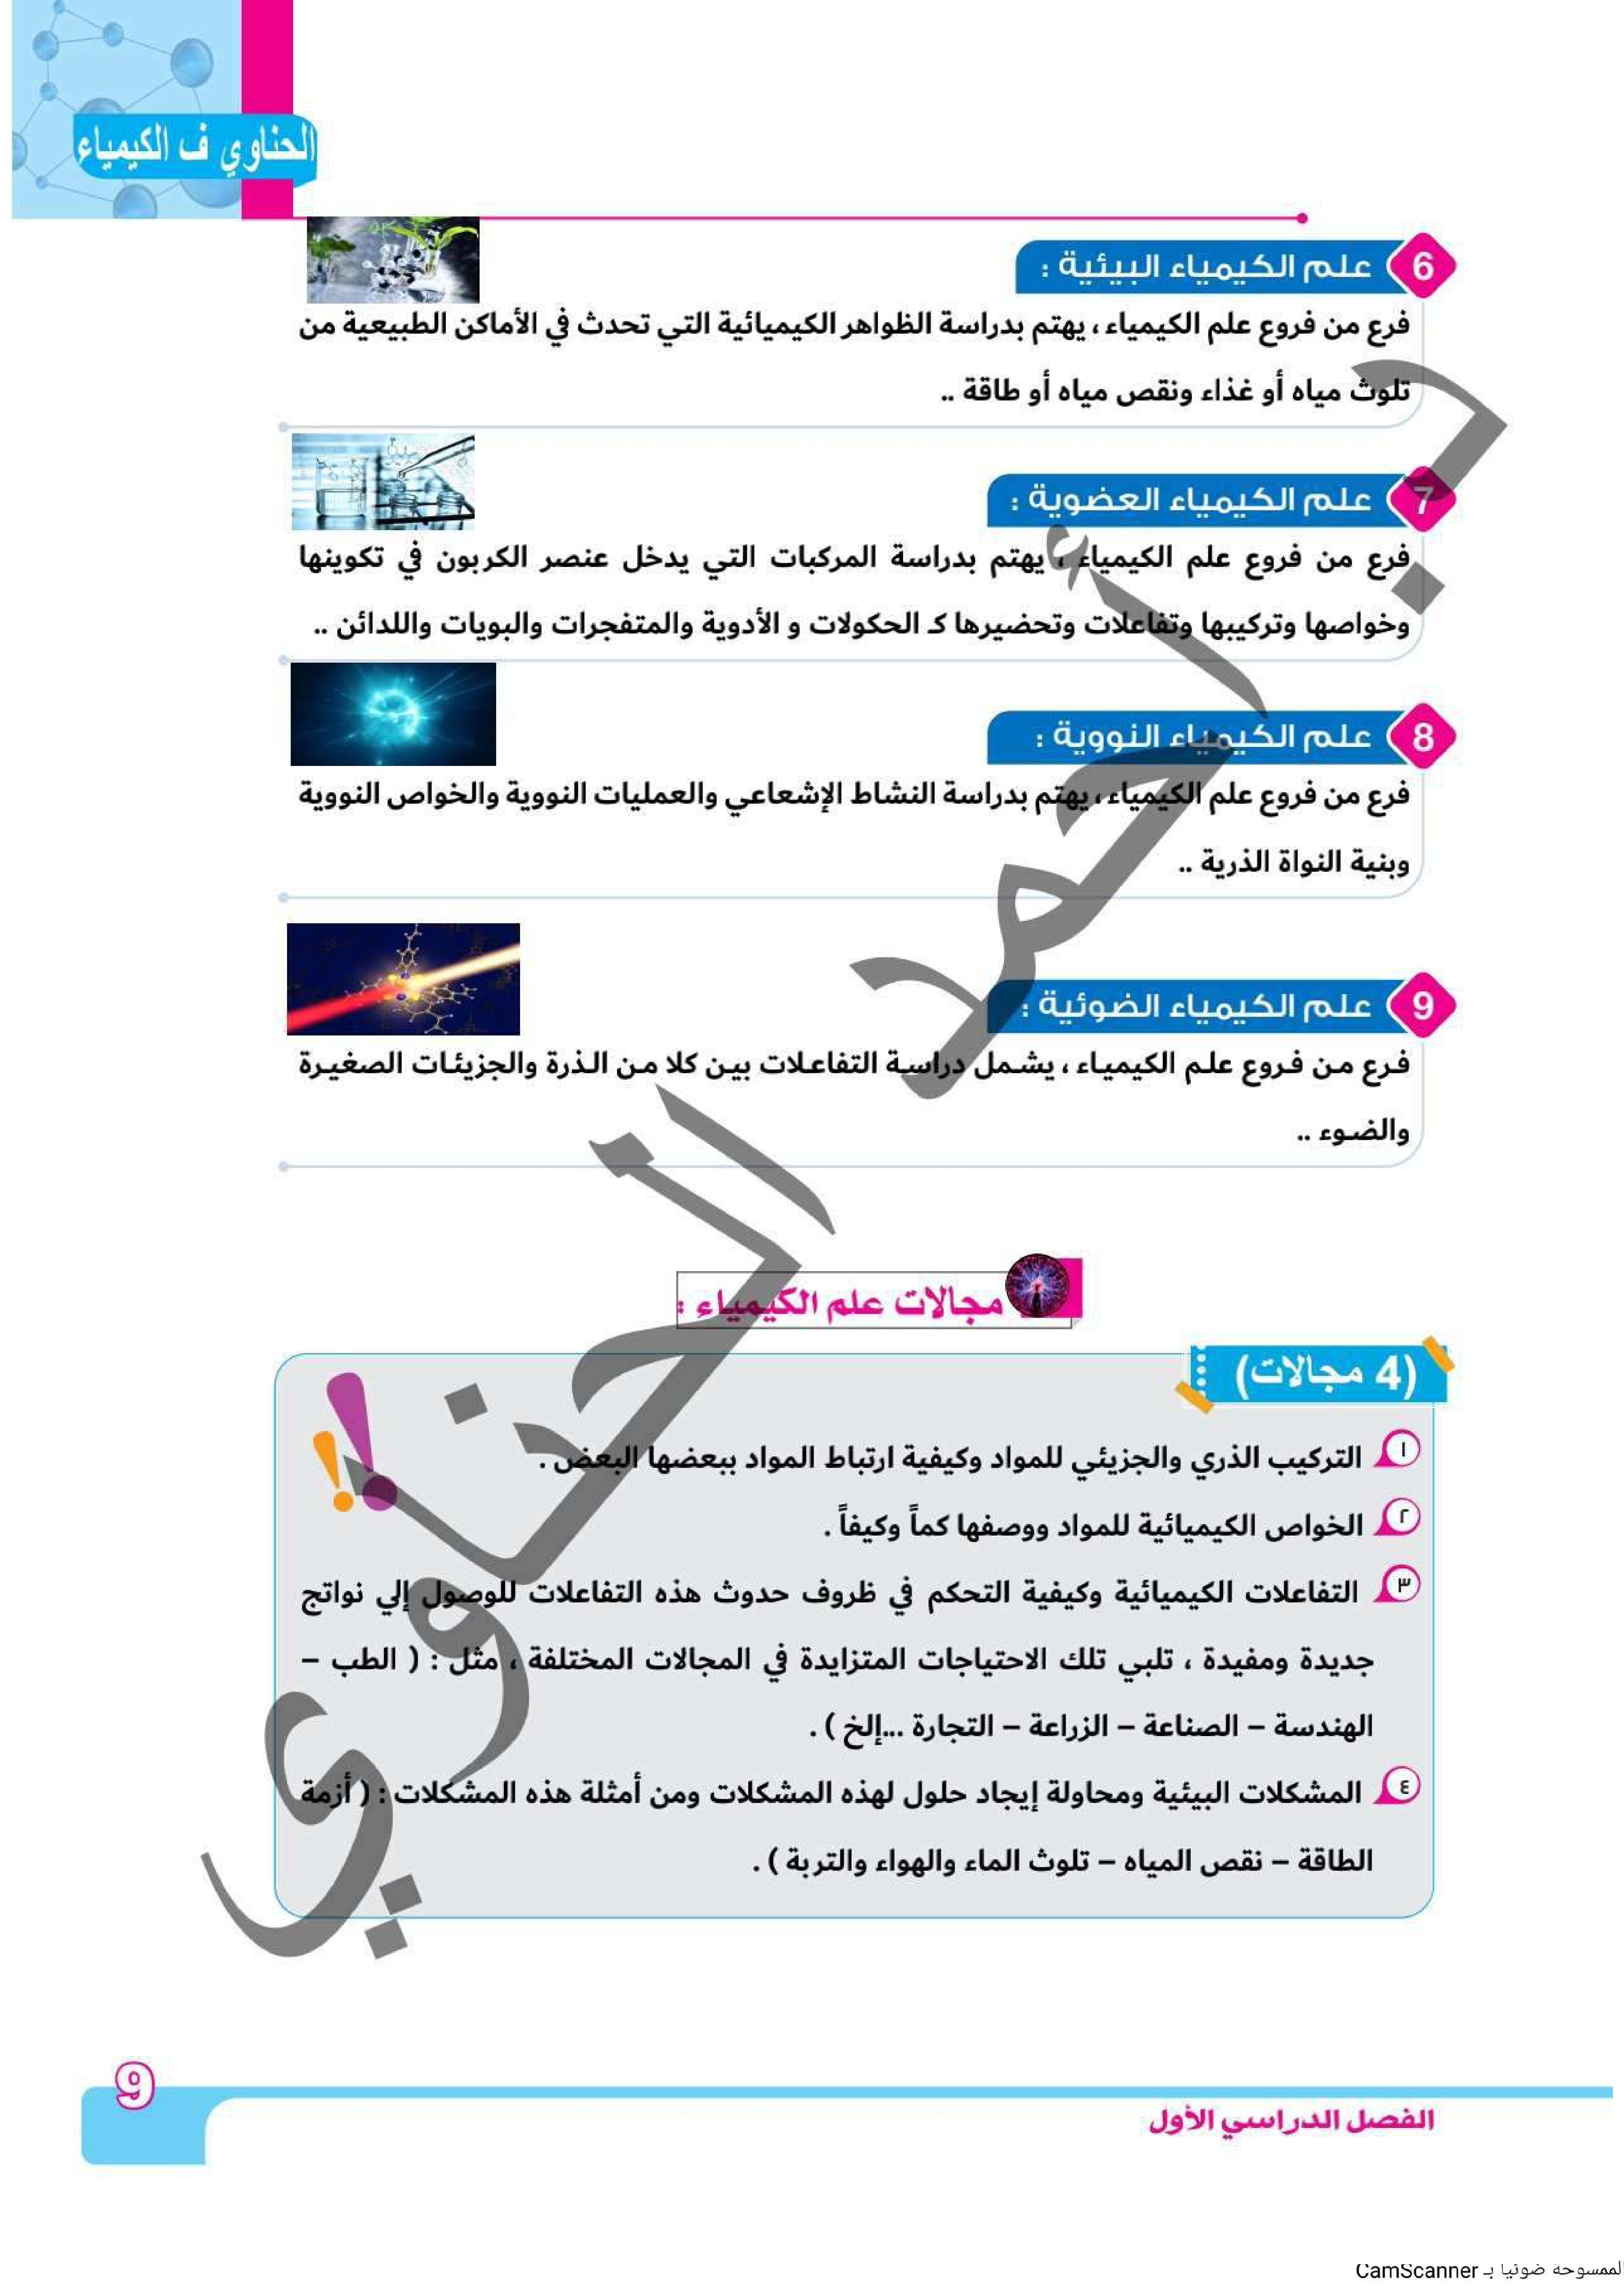 الحناوي ف الكيمياء
6 علم الكيمياء البيئية :
فرع من فروع علم الكيمياء ، يهتم بدراسة الظواهر الكيميائية التي تحدث في الأماكن الطبيعية من
تلوث مياه أو غذاء ونقص مياه أو طاقة ..
7 علم الكيمياء العضوية :
فرع من فروع علم الكيمياء ، يهتم بدراسة المركبات التي يدخل عنصر الكربون في تكوينها
وخواصها وتركيبها وتفاعلات وتحضيرها كـ الحكولات و الأدوية والمتفجرات والبويات واللدائن ..
8 علم الكيمياء النووية :
فرع من فروع علم الكيمياء ، يهتم بدراسة النشاط الإشعاعي والعمليات النووية والخواص النووية
وبنية النواة الذرية ..
9 علم الكيمياء الضوئية :
فرع من فروع علم الكيمياء ، يشمل دراسة التفاعلات بين كلا من الذرة والجزيئات الصغيرة
والضوء ..
مجالات علم الكيمياء :
(4 مجالات)
١ التركيب الذري والجزيئي للمواد وكيفية ارتباط المواد ببعضها البعض .
٢ الخواص الكيميائية للمواد ووصفها كماً وكيفاً .
٣ التفاعلات الكيميائية وكيفية التحكم في ظروف حدوث هذه التفاعلات للوصول إلي نواتج
جديدة ومفيدة ، تلبي تلك الاحتياجات المتزايدة في المجالات المختلفة ، مثل : ( الطب –
الهندسة – الصناعة – الزراعة – التجارة ...إلخ ) .
٤ المشكلات البيئية ومحاولة إيجاد حلول لهذه المشكلات ومن أمثلة هذه المشكلات : ( أزمة
الطاقة – نقص المياه – تلوث الماء والهواء والتربة ) .
د. أحمد الحناوي
9
الفصل الدراسي الأول
لممسوحة ضوئيا بـ CamScanner